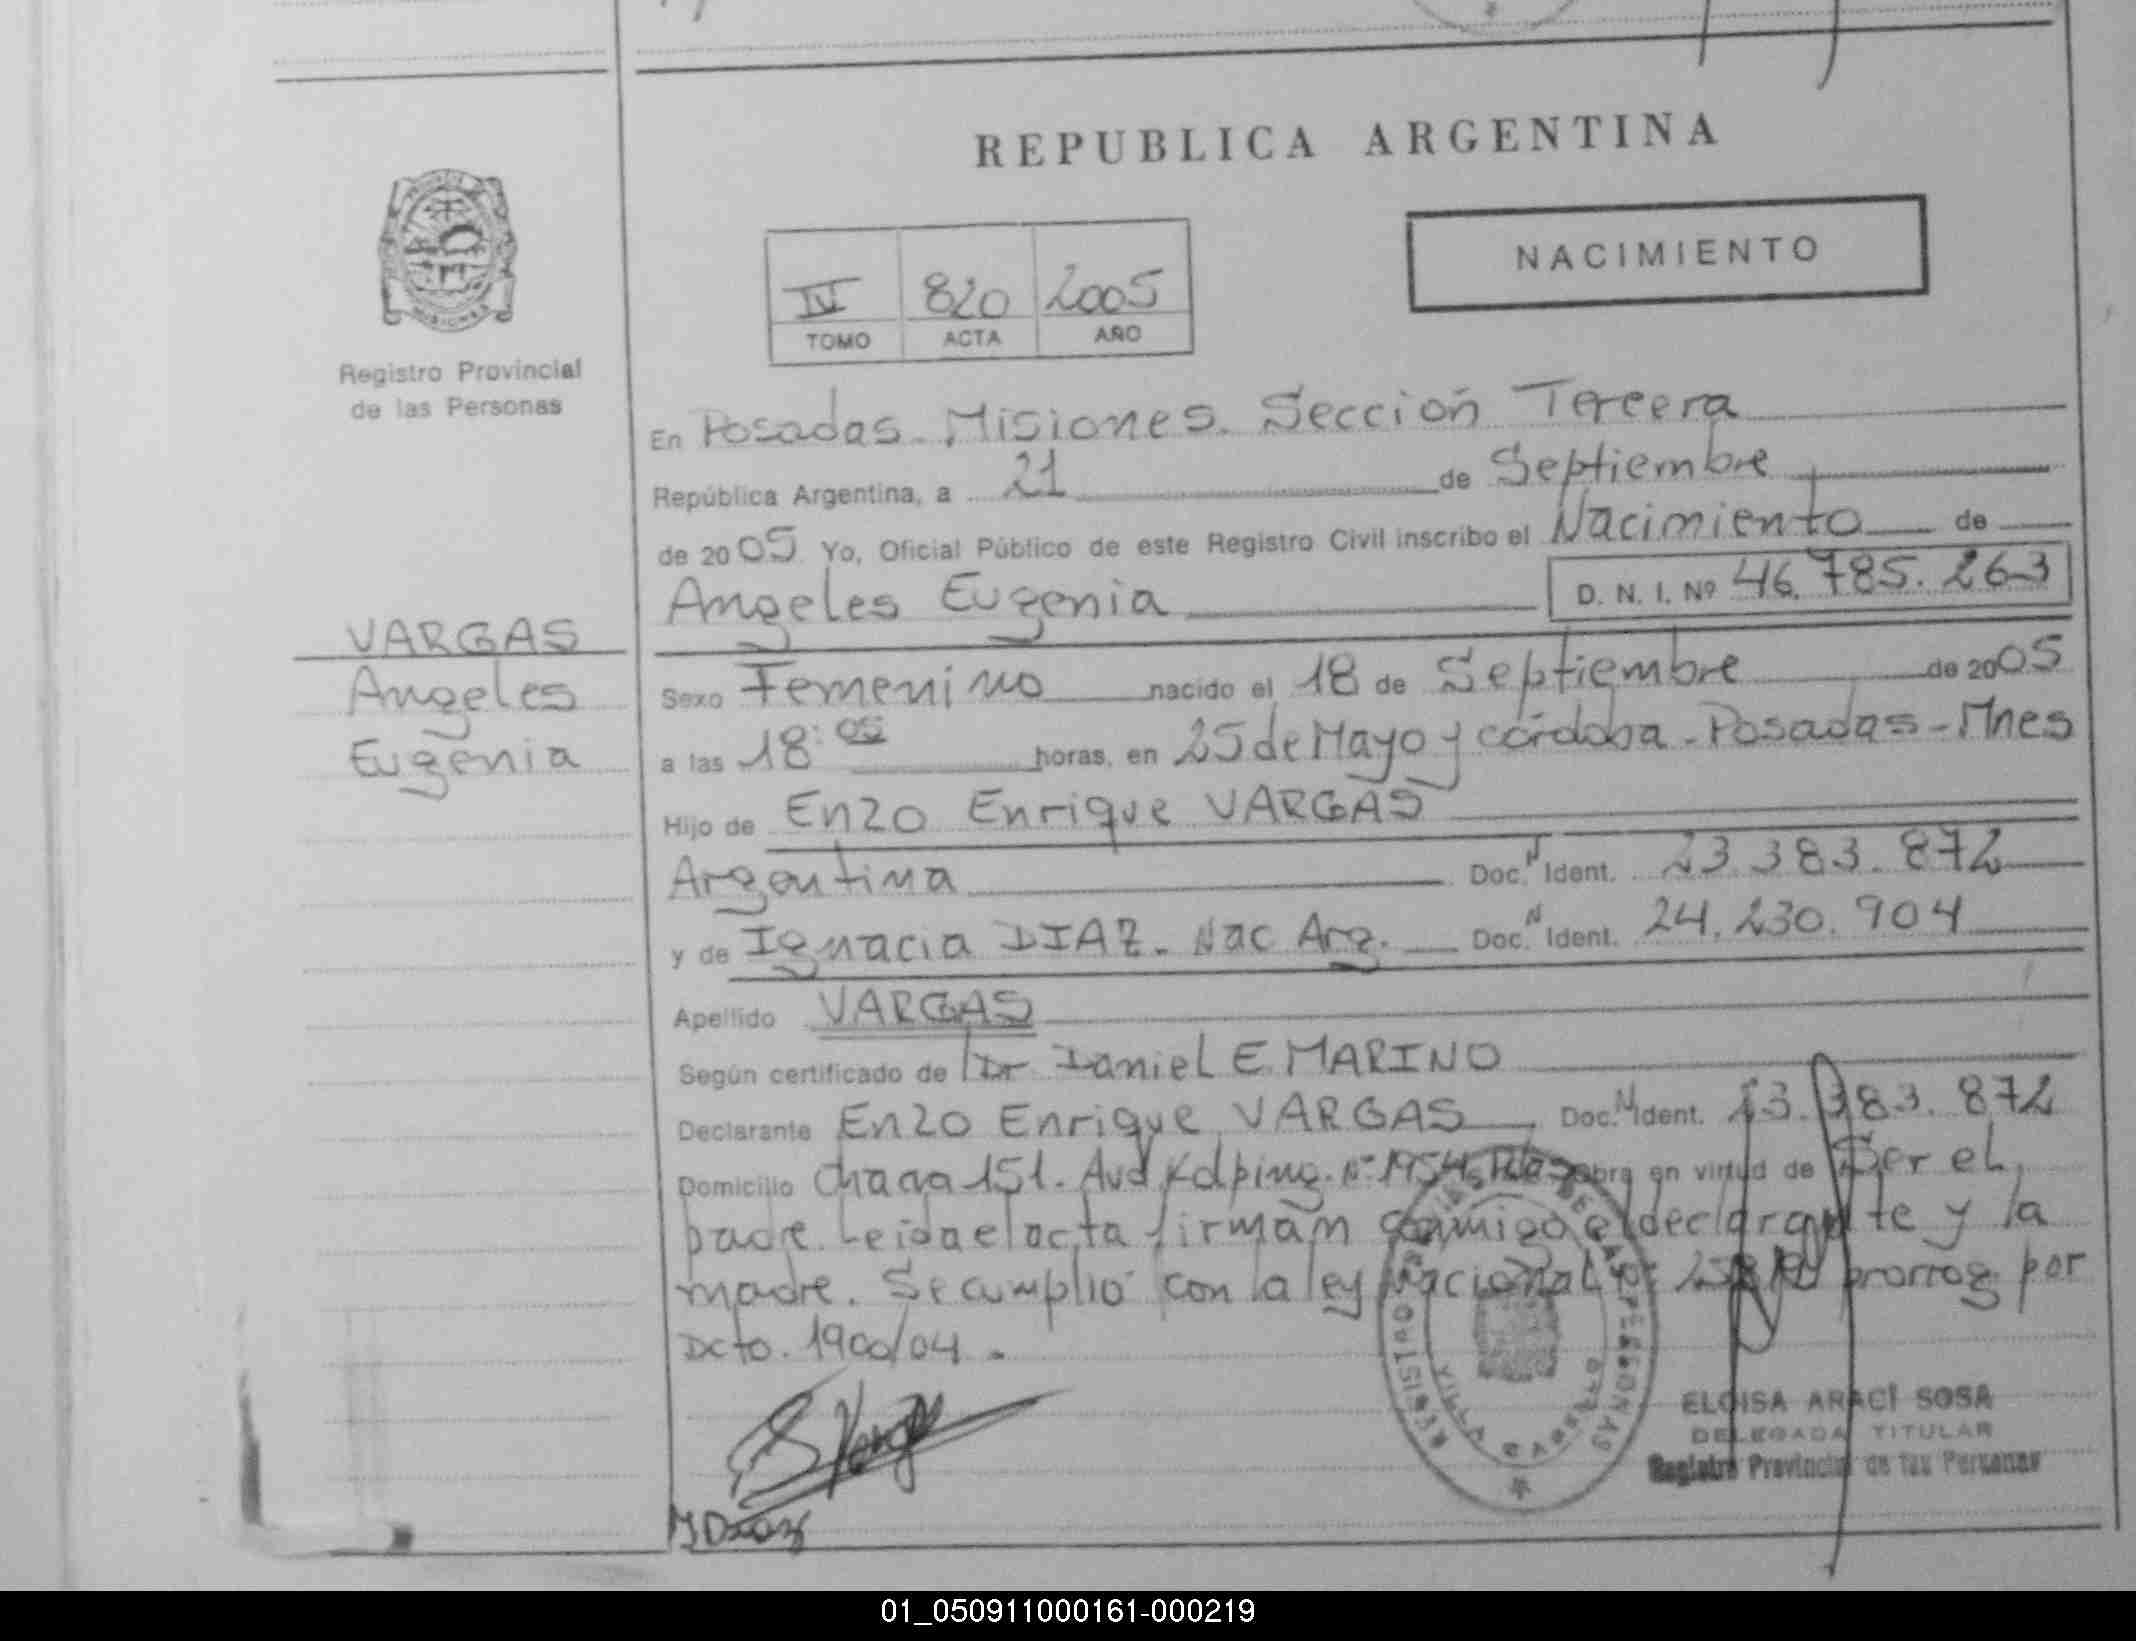 REPUBLICA ARGENTINA
NACIMIENTO
IV 820 2005
TOMO ACTA AÑO
Registro Provincial
de las Personas
VARGAS
Angeles
Eugenia
En Posadas. Misiones. Sección Tercera
República Argentina, a 21 de Septiembre
de 2005. Yo, Oficial Público de este Registro Civil inscribo el Nacimiento de
Angeles Eugenia D. N. I. Nº 46.785.263
Sexo Femenino nacido el 18 de Septiembre de 2005
a las 18:05 horas, en 25 de Mayo y córdoba - Posadas - Mnes
Hijo de Enzo Enrique VARGAS
Argentina Doc. N Ident. 23.383.872
y de Ignacia DIAZ. Nac Arg. Doc. N Ident. 24.230.904
Apellido VARGAS
Según certificado de Dr Daniel E. MARINO
Declarante Enzo Enrique VARGAS Doc. N Ident. 23.383.872
Domicilio Chacra 151. Avd Kolping. Nº 1954 Pdas obra en virtud de Ser el
padre. Leída el acta firmán conmigo el declarante y la
madre. Se cumplió con la ley Nacional prorrog. por
Dcto. 1900/04.
ELOISA ARACI SOSA
DELEGADA TITULAR
Registro Provincial de las Personas
01_050911000161-000219